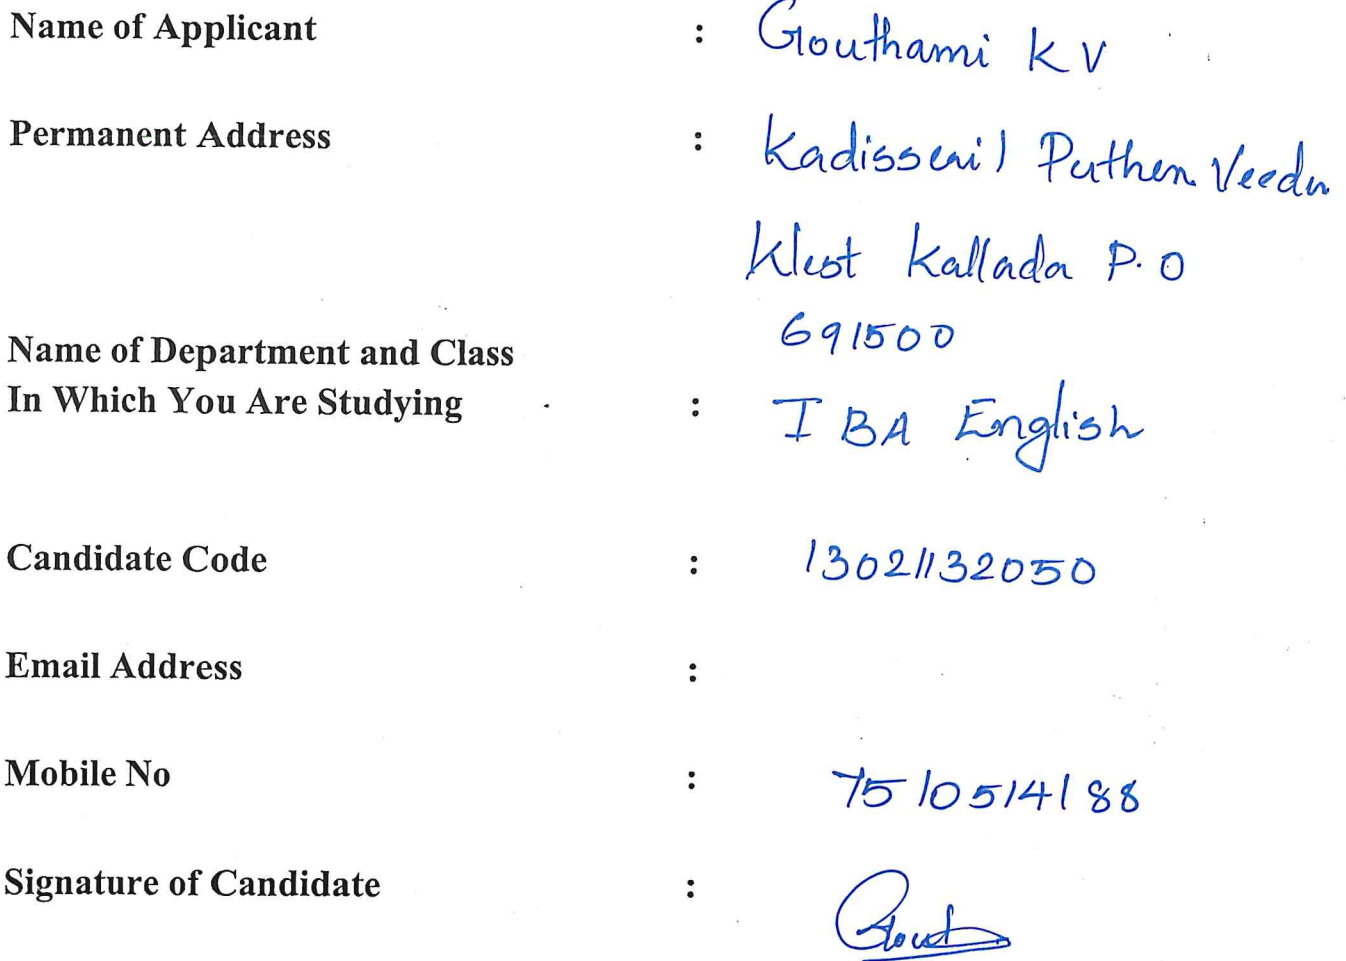 Name of Applicant : Gouthami K V
Permanent Address : Kadisseril Puthen Veedu
West Kallada P.O
691500
Name of Department and Class
In Which You Are Studying : I BA English
Candidate Code : 13021132050
Email Address :
Mobile No : 7510514188
Signature of Candidate : Gout